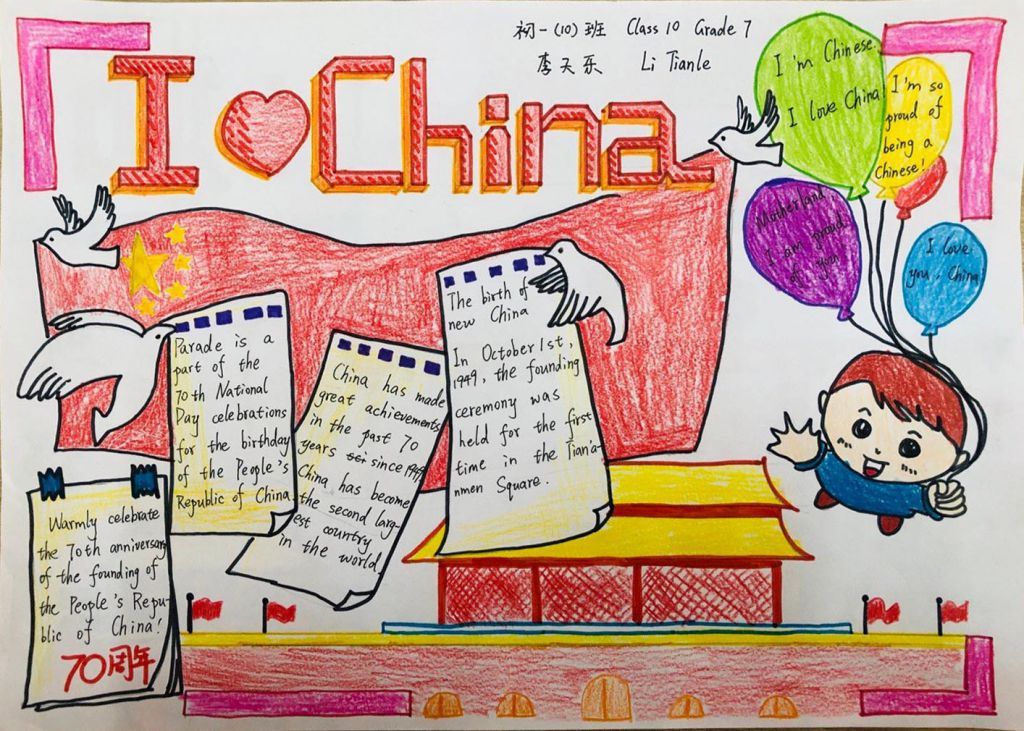 初一(10)班 Class 10 Grade 7
李天乐 Li Tianle
I ♥ China
I'm Chinese.
I love China
I'm so
proud of
being a
Chinese!
Motherland,
I am proud
of you!
I love
you, China!
Parade is a
part of the
70th National
Day celebrations
for the birthday
of the People's
Republic of China.
China has made
great achievements
in the past 70
years sci since 1949.
China has become
the second larg-
est country
in the world
The birth of
new China
In October 1st,
1949, the founding
ceremony was
held for the first
time in the Tian'a-
nmen Square.
Warmly celebrate
the 70th anniversary
of the founding of
the People's Repu-
blic of China!
70周年